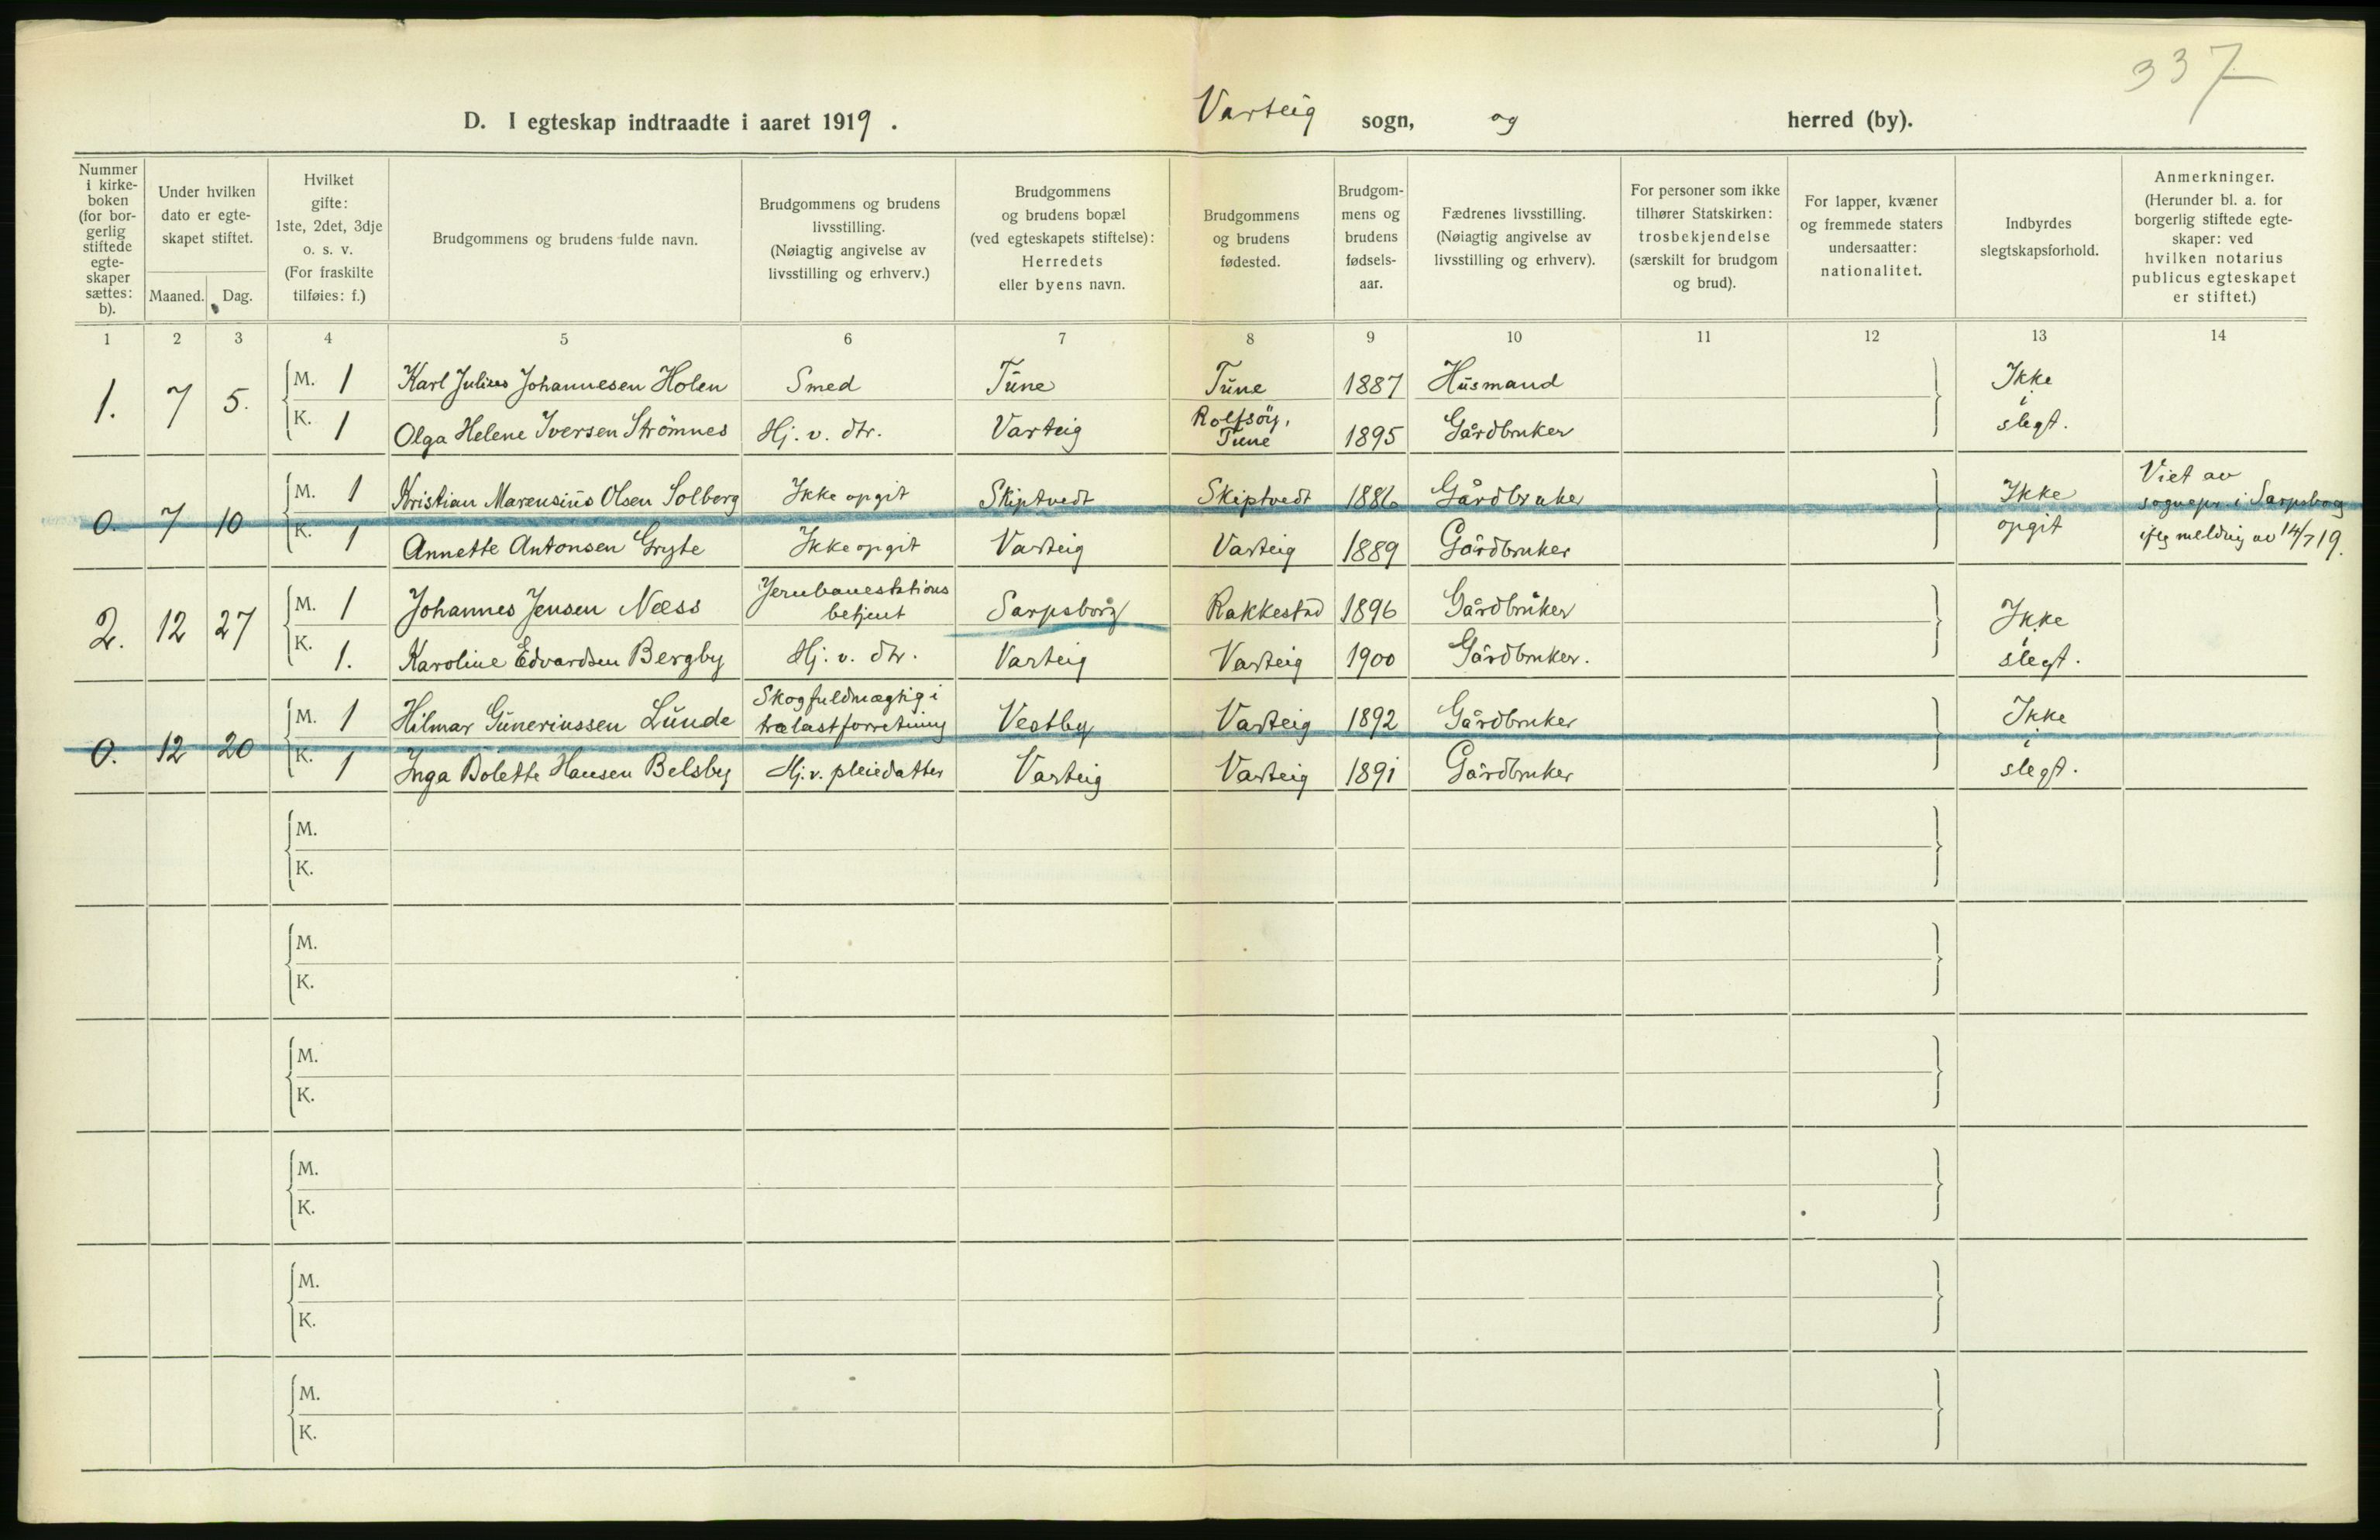 337
D. I egteskap indtraadte i aaret 1919. Varteig sogn, og herred (by).
Nummer i kirke-boken (for bor-gerlig stiftede egte-skaper sættes: b).
Under hvilken dato er egte-skapet stiftet.
Maaned. Dag.
Hvilket gifte: 1ste, 2det, 3dje o. s. v. (For fraskilte tilføies: f.)
Brudgommens og brudens fulde navn.
Brudgommens og brudens livsstilling. (Nøiagtig angivelse av livsstilling og erhverv.)
Brudgommens og brudens bopæl (ved egteskapets stiftelse): Herredets eller byens navn.
Brudgommens og brudens fødested.
Brudgom-mens og brudens fødsels-aar.
Fædrenes livsstilling. (Nøiagtig angivelse av livsstilling og erhverv).
For personer som ikke tilhører Statskirken: trosbekjendelse (særskilt for brudgom og brud).
For lapper, kvæner og fremmede staters undersaatter: nationalitet.
Indbyrdes slegtskapsforhold.
Anmerkninger. (Herunder bl. a. for borgerlig stiftede egte-skaper: ved hvilken notarius publicus egteskapet er stiftet.)
1 2 3 4 5 6 7 8 9 10 11 12 13 14
1. 7 5. M. 1 Karl Julius Johannesen Holen Smed Tune Tune 1887 Husmand Ikke i slegt.
K. 1 Olga Helene Iversen Strömnes Hj. v. dtr. Varteig Rolfsöy, Tune 1895 Gårdbruker
0. 7 10 M. 1 Kristian Marensius Olsen Solberg Ikke opgit Skiptvedt Skiptvedt 1886 Gårdbruker Ikke opgit Viet av sognepr. i Sarpsborg iflg melding av 14/7 19.
K. 1 Annette Antonsen Gryte Ikke opgit Varteig Varteig 1889 Gårdbruker
2. 12 27 M. 1 Johannes Jensen Næss Jernbanestations betjent Sarpsborg Rakkestad 1896 Gårdbruker Ikke i slegt.
K. 1. Karoline Edvardsen Bergby Hj. v. dtr. Varteig Varteig 1900 Gårdbruker.
0. 12 20 M. 1 Hilmar Guneriussen Lunde Skogfuldmægtig i trælastforretning Vestby Varteig 1892 Gårdbruker Ikke i slegt.
K. 1 Inga Bolette Hansen Belsby Hj. v. pleiedatter Varteig Varteig 1891 Gårdbruker
M.
K.
M.
K.
M.
K.
M.
K.
M.
K.
M.
K.